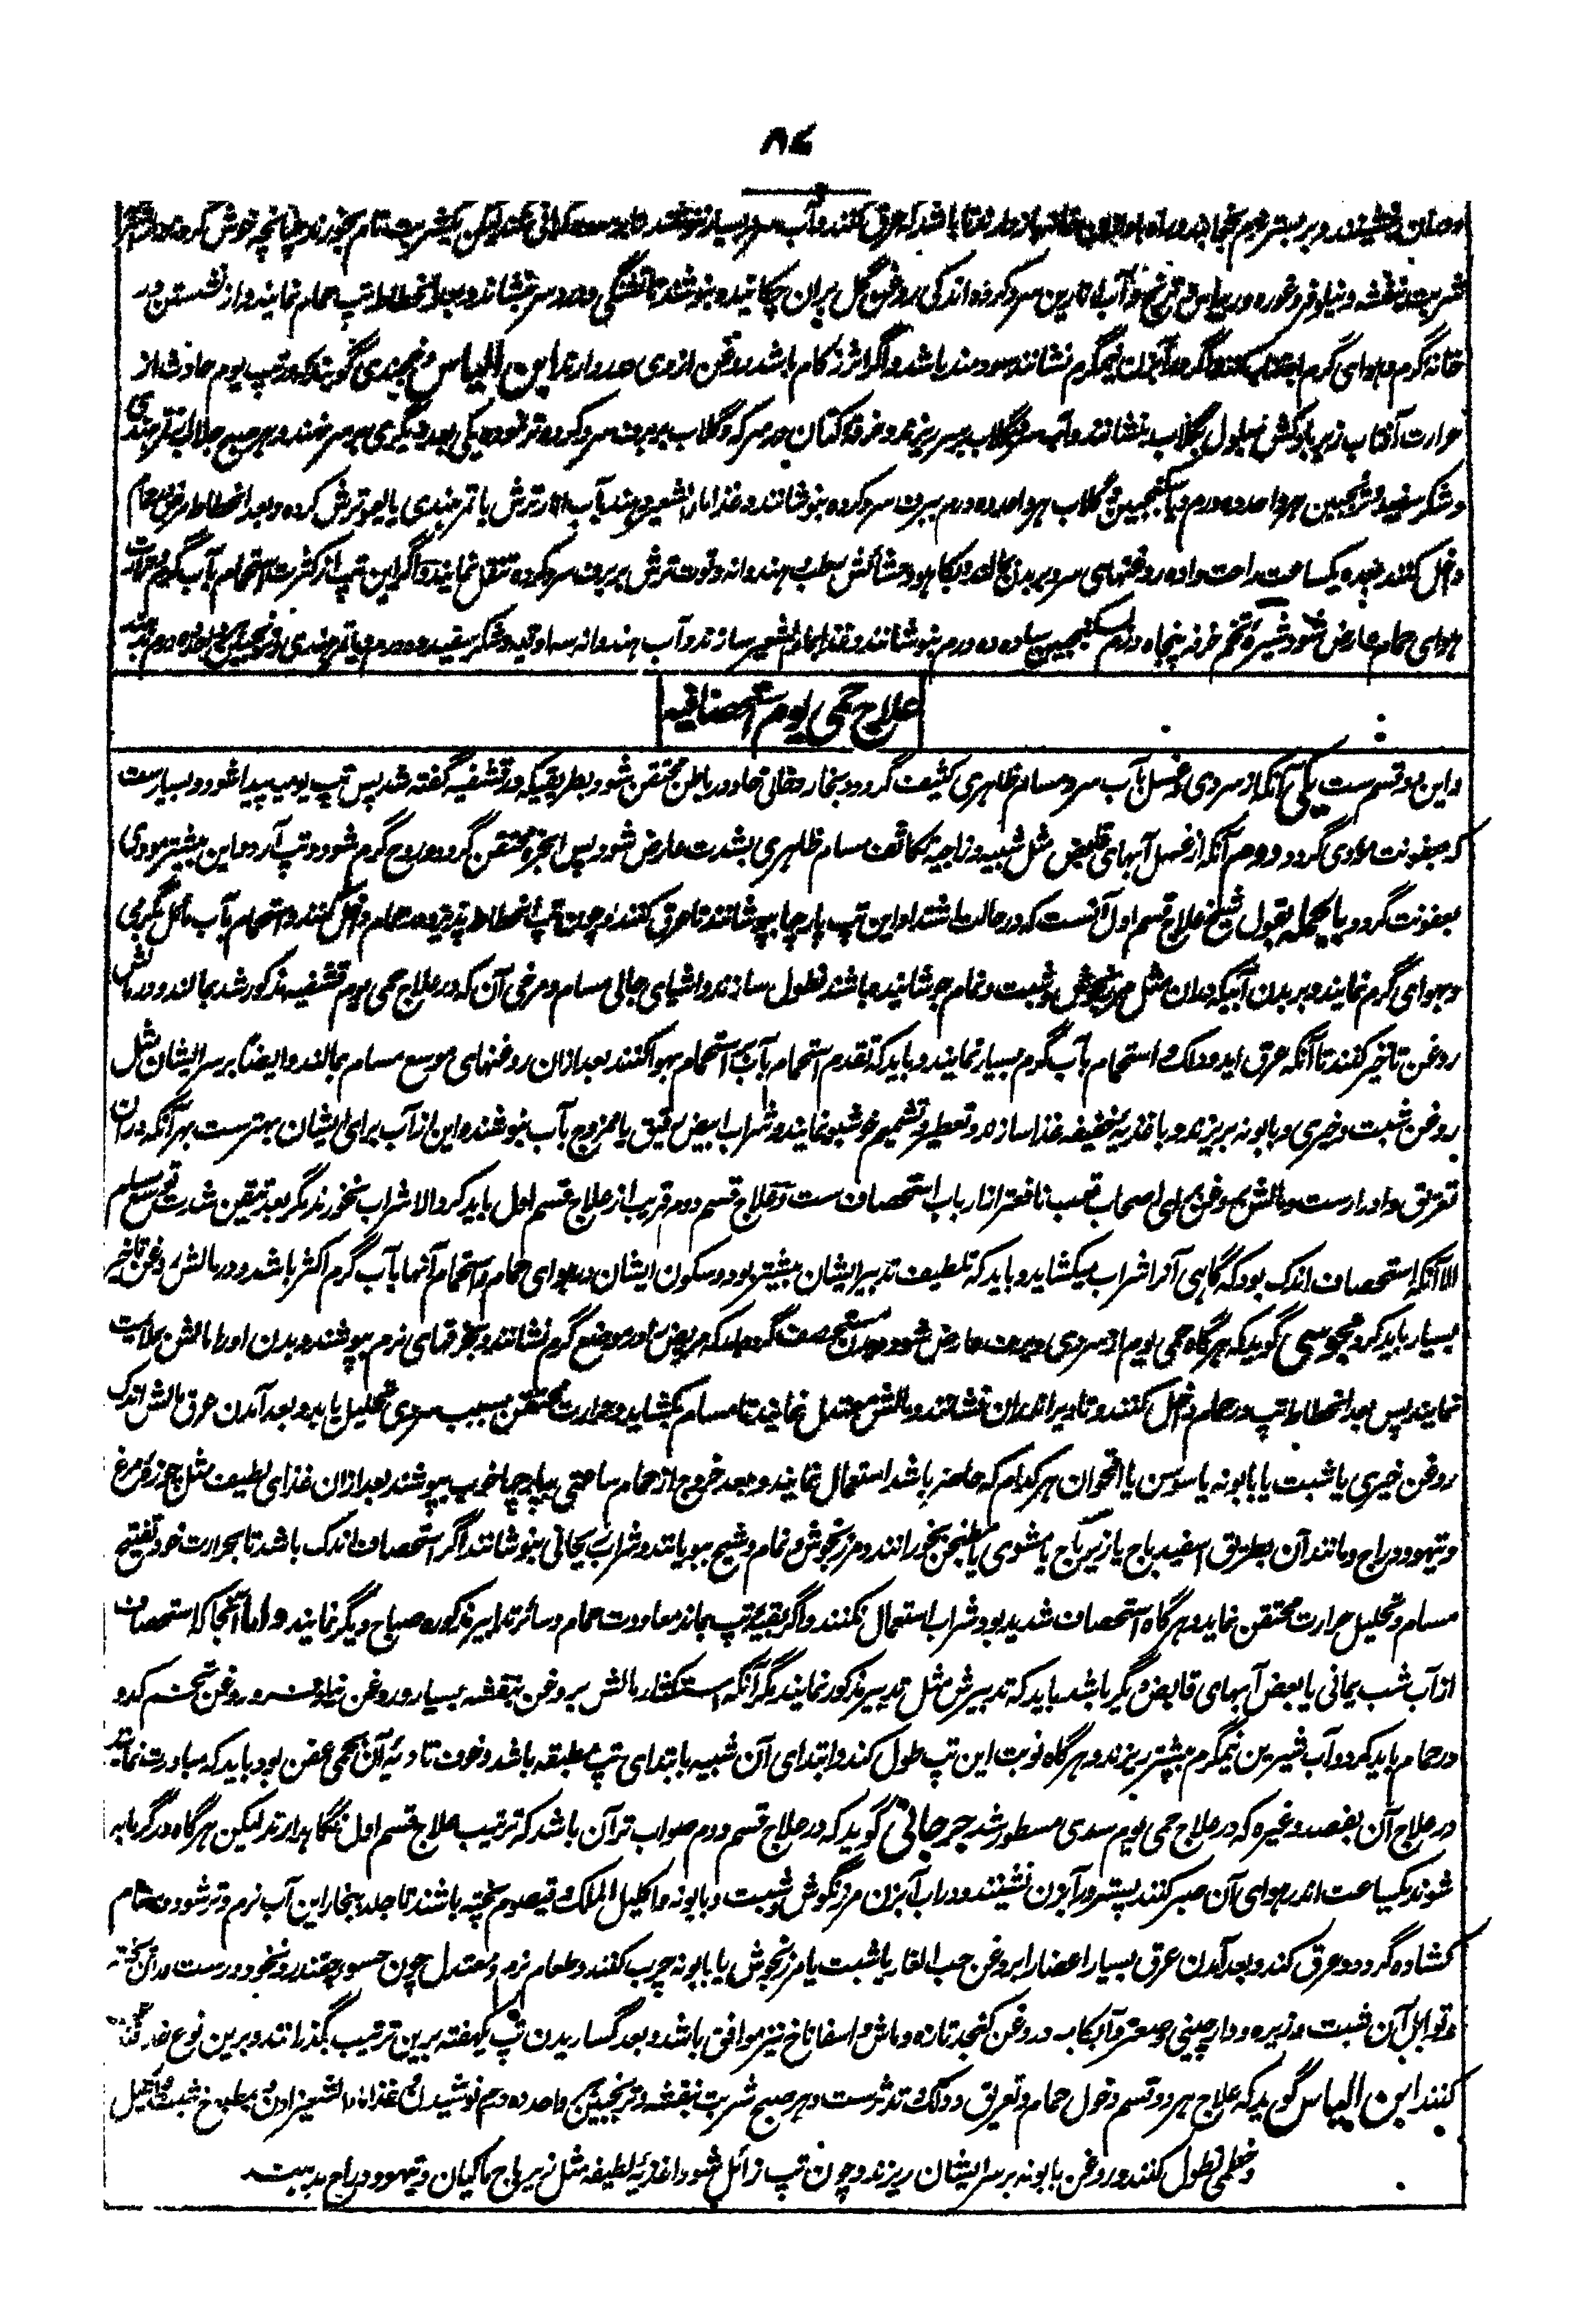 ۸۴
شربت بنفشه و نیلوفر و غوره و ریباس و ترنج و آب انارین سرد کرده اندکی روغن گل بران چکانیده بنوشند تا تشنگی و درد سر بنشاند و بعد انحطاط تپ حمام نمایند و از نشستن در
خانه گرم و هوای گرم اجتناب کنند و اگر در آبزن نیمگرم نشانند سودمند باشد و اگر اثر زکام باشد روغن ازوی دور دارند ابن الیاس خجندی گوید که در تپ یوم حادث از
حرارت آفتاب زیر بادکش مبلول بگلاب بنشانند و آب سرد و گلاب بر سر ریزند و خرقه کتان در سرکه و گلاب ببرف سرد کرده تر نموده یکی بعد دیگری بر سر نهند و هر صبح جلاب تمر هندی
و شکر سفید و ترنجبین هر واحد ده درم یا سکنجبین و گلاب هر واحد ده درم ببرف سرد کرده بنوشانند و غذا ماء الشعیر دهند بآب انار ترش یا تمر هندی یا لیمو ترش کرده و بعد انحطاط مرض حمام
داخل کنند و بعده یکساعت راحت داده روغنهای سرد بر بدن بمالند و بکاهو و خشخاش رطب و هندوانه و توت ترش ببرف سرد کرده تنقل نمایند و اگر این تپ از کثرت استحمام بآب گرم و حرارت
هوای حمام عارض شود شیره تخم خرفه پنجاه درم سکنجبین ساده ده درم بنوشانند و غذا ماء الشعیر سازند و آب هندوانه سه اوقیه و شکر سفید ده درم یا تمر هندی و ترنجبین هر واحد ده درم
علاج حمی یوم استحصافیه
و این بدو قسم ست یکی آنکه از سردی و غسل بآب سرد مسام ظاهری کثیف گردد و بخار دخانی حاد در باطن محتقن شود بطریقیکه در قشفیه گفته شد پس تپ یومیه پیدا شود و بسیارست
که بعفونت مودی گردد و دوم آنکه از غسل آبهای قابض مثل شبیه و زاجیه تکاثف مسام ظاهری بشدت عارض شود پس ابخره محتقن گردد و روح گرم شود و تپ آرد و این بیشتر مودی
بعفونت گردد بالجمله بقول شیخ علاج قسم اول آنست که در حالت اشتداد این تپ پارچها بپوشانند تا عرق کنند و چون تپ انحطاط پذیرد در حمام داخل کنند و استحمام بآب مائل بگرمی
و بهوای گرم نمایند و بر بدن آبیکه دران مثل مرزنجوش و شبت و نمام جوشانیده باشند نطول سازند و اشیای جالی مسام و مرخی آن که در علاج حمی یوم قشفیه مذکور شد بمالند و در مالش
روغن تاخیر کنند تا آنکه عرق آید و دلک و استحمام بآب گرم بسیار نمایند و باید که تقدم استحمام بآب بر استحمام بهوا کنند بعد ازان روغنهای موسع مسام بمالند و ایضا بر سر ایشان مثل
روغن شبت و خیری و بابونه بریزند و باغذیه خفیفه غذا سازند و تعطیر و تشمیم خوشبو نمایند و شراب ابیض رقیق یا ممزوج بآب بنوشند و این از آب برای ایشان بهترست بهر آنکه دران
تعریق و ادرارست و مالش بروغن برای اصحاب تعب نافعتر از ارباب استحصاف ست و علاج قسم دوم قریب از علاج قسم اول باید کرد الا شراب نخورند مگر بعد تیقن شدت توسع مسام
الا آنکه استحصاف اندک بود که گاهی آنرا شراب میکشاید و باید که تلطیف تدبیر ایشان بیشتر بود و سکون ایشان در هوای حمام و استحمام آنها بآب گرم اکثر باشد و در مالش روغن تاخیر
بسیار باید کرد مجوسی گوید که هرگاه حمی یوم از سردی و برف عارض شود و بدن مستحصف گردد باید که مریض را در موضع گرم نشانند و بخرقهای نرم بپوشند و بدن او را مالش بملایمت
نمایند پس بعد انحطاط تپ در حمام داخل کنند و تا دیر اندران نشانند و مالش معتدل نمایند تا مسام بکشاید و حرارت محتقن بسبب سردی تحلیل یابد و بعد آمدن عرق مالش اندک
روغن خیری یا شبت یا بابونه یا سوسن یا اقحوان هر کدام که حاضر باشد استعمال نمایند و بعد خروج از حمام ساعتی بپارچها خوب بپوشند بعد ازان غذای لطیف مثل چوزه مرغ
و تیهو و دراج و مانند آن بطریق اسفیدباج یا زیرباج یا مشوی یا مطجن بخورانند و مرزنجوش و نمام و شیح ببویانند و شراب ریحانی بنوشانند اگر استحصاف اندک باشد تا بحرارت خود تفتیح
مسام و تحلیل حرارت محتقن نماید و هرگاه استحصاف شدید بود شراب استعمال نکنند و اگر بقیه تپ بماند معاودت حمام و سائر تدابیر مذکوره صباح دیگر نمایند و اما آنجا که استحصاف
از آب شب یمانی یا بعض آبهای قابض دیگر باشد باید که تدبیرش مثل تدبیر مذکور نمایند مگر آنکه استکثار مالش بروغن بنفشه بسیار و روغن نیلوفر و روغن تخم کدو
در حمام باید کرد و آب شیرین نیمگرم بیشتر ریزند و هرگاه نوبت این تپ طول کند و ابتدای آن شبیه بابتدای تپ مطبقه باشد و خوف تادیه آن بحمی عفن بود باید که مبادرت نمایند
در علاج آن بفصد و غیره که در علاج حمی یوم سدی مسطور شد جرجانی گوید که در علاج قسم دوم صواب تر آن باشد که ترتیب علاج قسم اول نگاهدارند لیکن هرگاه در گرمابه
شوند یکساعت اندر هوای آن صبر کنند پستر در آبزن نشینند و در آب آبزن مرزنگوش و شبت و بابونه و اکلیل الملک و قیصوم پخته باشند تا جلد ببخار این آب نرم و تر شود و مسام
کشاده گردد و عرق کند و بعد آمدن عرق بسیار اعضا را بروغن حب الغار یا شبت یا مرزنجوش یا بابونه چرب کنند و طعام نرم و معتدل چون حسو و چقندر و نخود درست دران پخته
و توابل آن شبت و زیره و دارچینی و صعتر و آبکامه و روغن کنجد تازه و ماش و اسفاناخ نیز موافق باشد و بعد گساریدن تپ یکهفته برین ترتیب بگذرانند و برین نوع
کنند ابن الیاس گوید که علاج هر دو قسم دخول حمام و تعریق و دلک و تدثر ست و هر صبح شربت بنفشه و ترنجبین هر واحد ده درم نوشیدن و غذا ماء الشعیر دادن و بمطبوخ شبت و اکلیل
و خطمی نطول کنند و روغن بابونه بر سر ایشان ریزند و چون تپ زائل شود اغذیه لطیفه مثل زیرباج ماکیان و تیهو و دراج بدهند